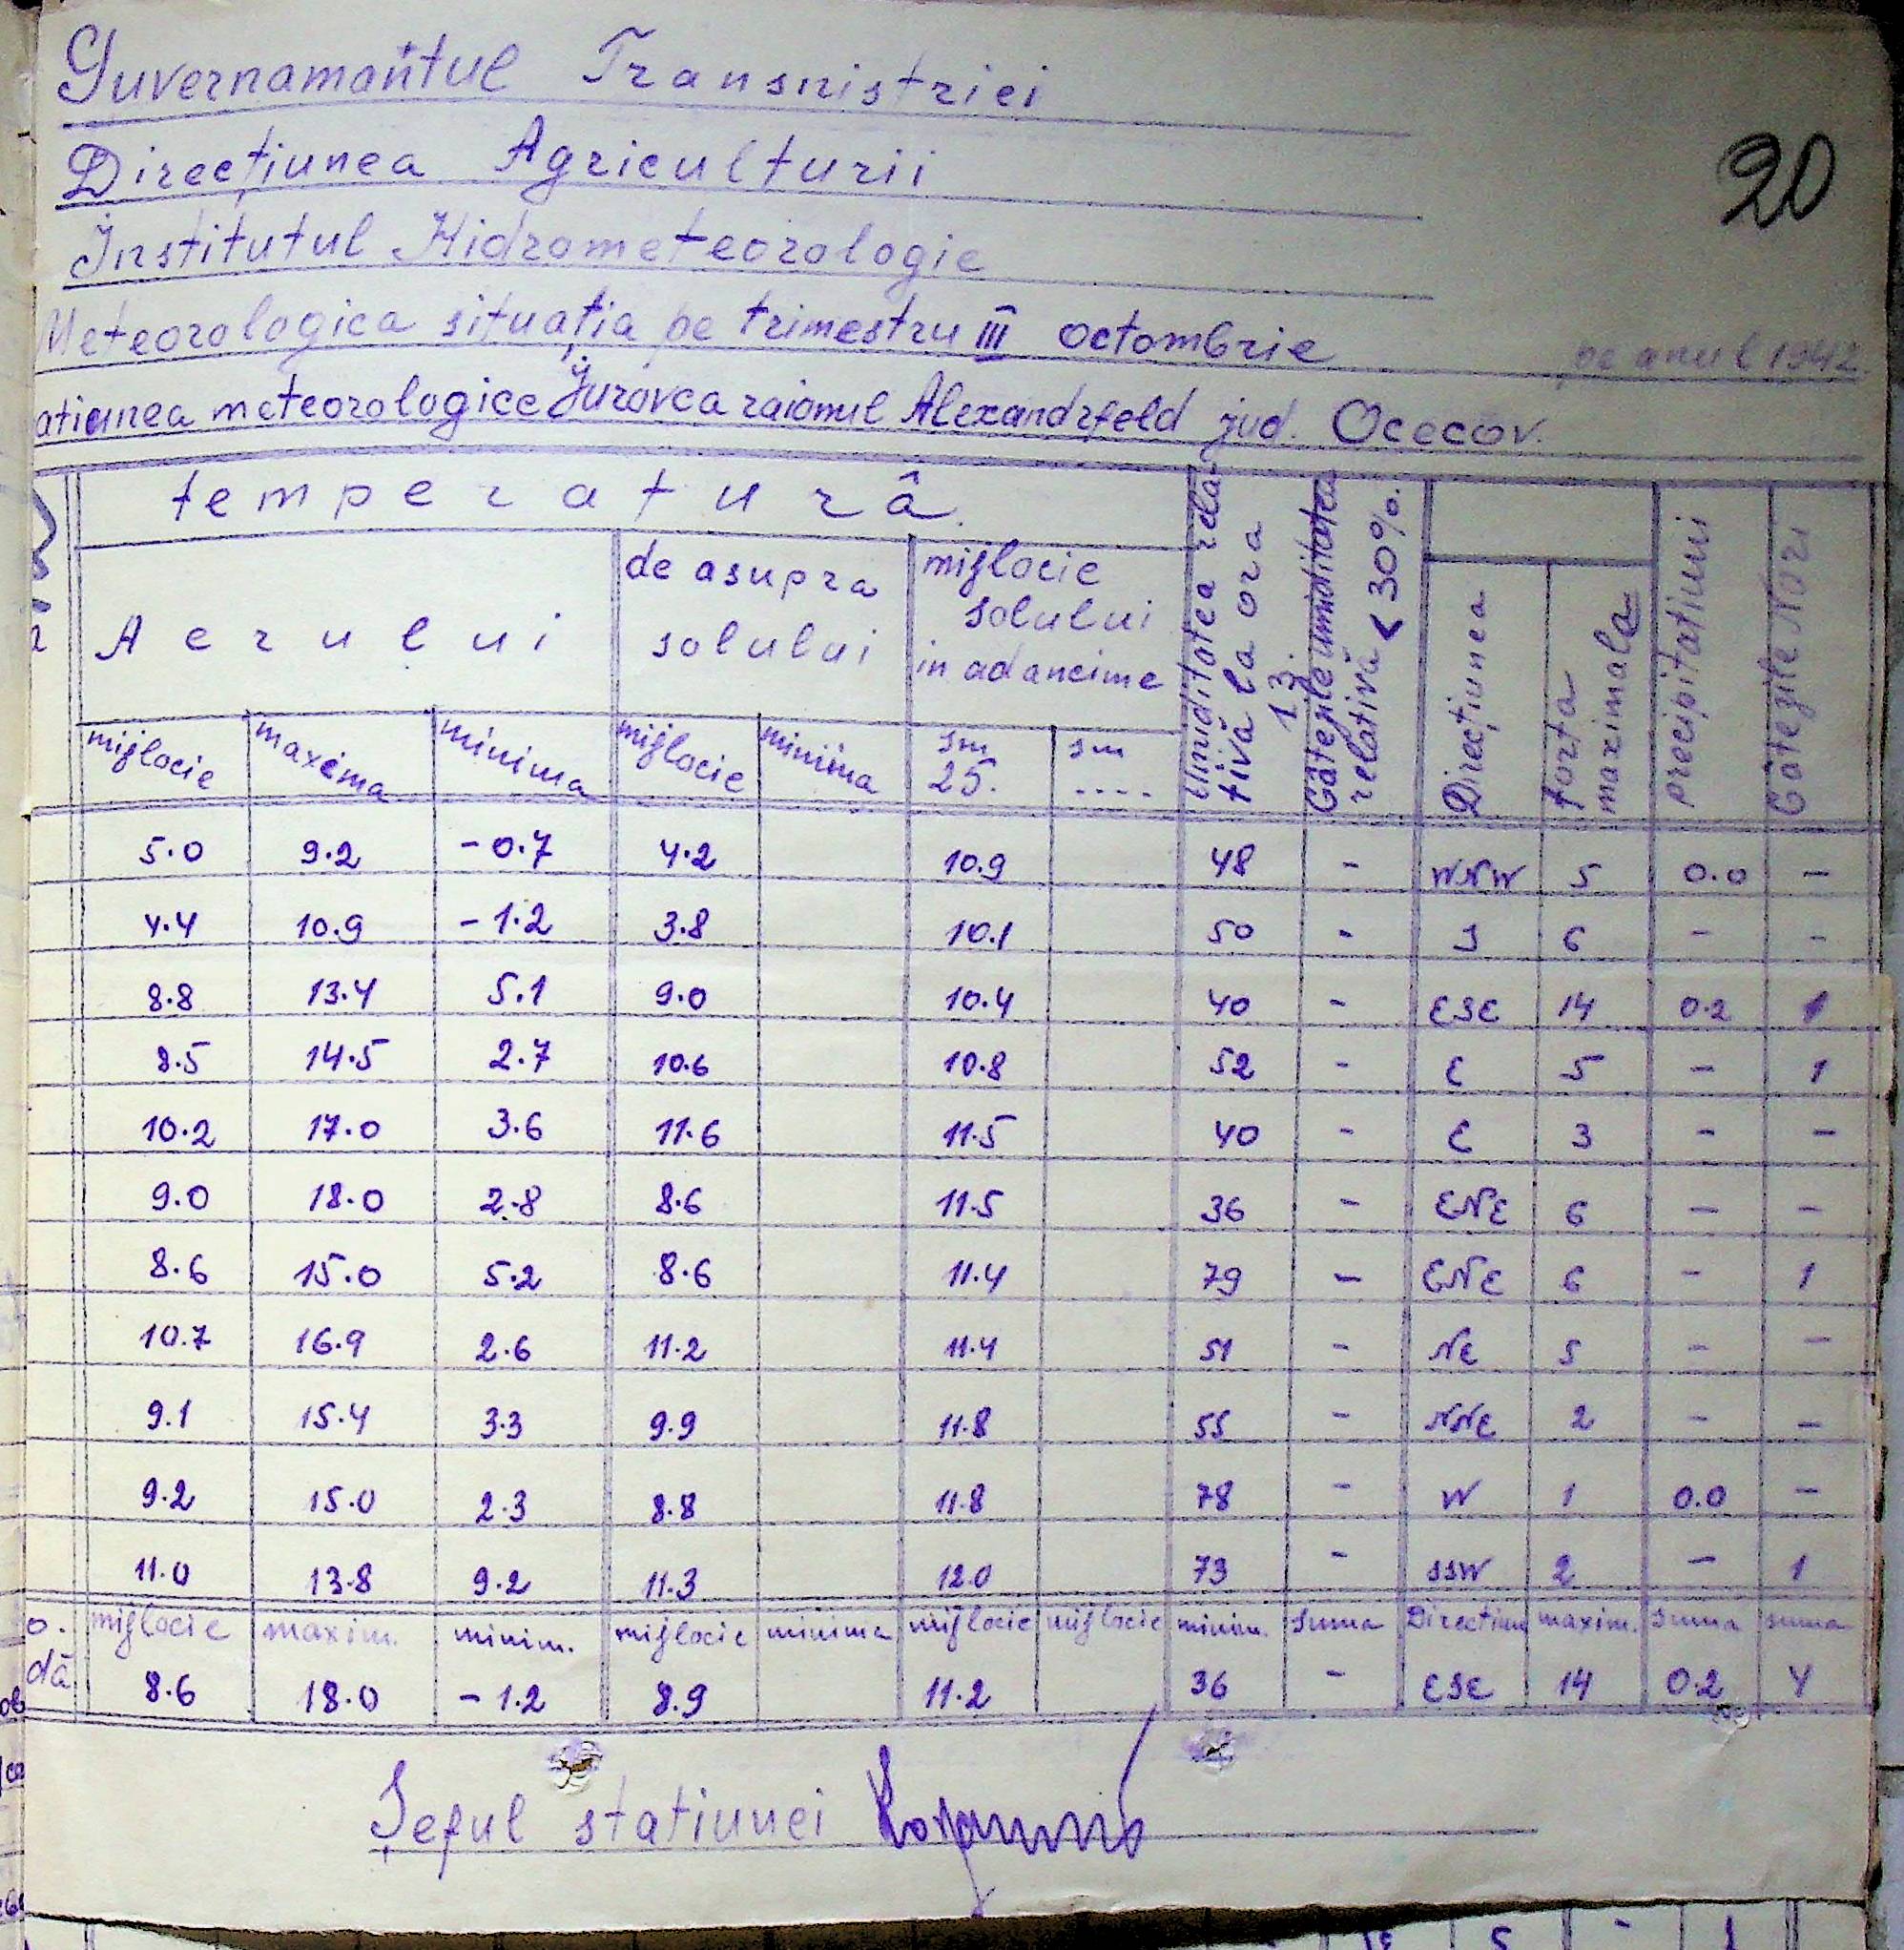 Guvernamantul Transnistriei
20
Direcțiunea Agriculturii
Institutul Hidrometeorologic
Meteorologica situația pe trimestru III octombrie pe anul 1942.
atiunea meteorologice Jurovca raionul Alexandrfeld jud. Ocecov.
temperatură.
Aerului
de asupra solului
mijlocie solului in adancime
Umiditatea relativă la ora 13.
Câte zile umiditatea relativă < 30%.
Direcțiunea
forta maximala
precipitatiunii
Câte zile Nori
mijlocie maxima minima mijlocie minima sm 25. sm ....
5.0 9.2 -0.7 4.2 10.9 48 - WNW 5 0.0 -
4.4 10.9 -1.2 3.8 10.1 50 - S 6 - -
8.8 13.4 5.1 9.0 10.4 40 - ESE 14 0.2 1
8.5 14.5 2.7 10.6 10.8 52 - E 5 - 1
10.2 17.0 3.6 11.6 11.5 40 - E 3 - -
9.0 18.0 2.8 8.6 11.5 36 - ENE 6 - -
8.6 15.0 5.2 8.6 11.4 79 - ENE 6 - 1
10.7 16.9 2.6 11.2 11.4 51 - NE 5 - -
9.1 15.4 3.3 9.9 11.8 55 - NNE 2 - -
9.2 15.0 2.3 8.8 11.8 78 - W 1 0.0 -
11.0 13.8 9.2 11.3 12.0 73 - SSW 2 - 1
o. mijlocie maxim. minim. mijlocie minima mijlocie mijlocie minim. suma Directiun maxim. suma suma
dă 8.6 18.0 -1.2 8.9 11.2 36 - ESE 14 0.2 4
Șeful statiunei